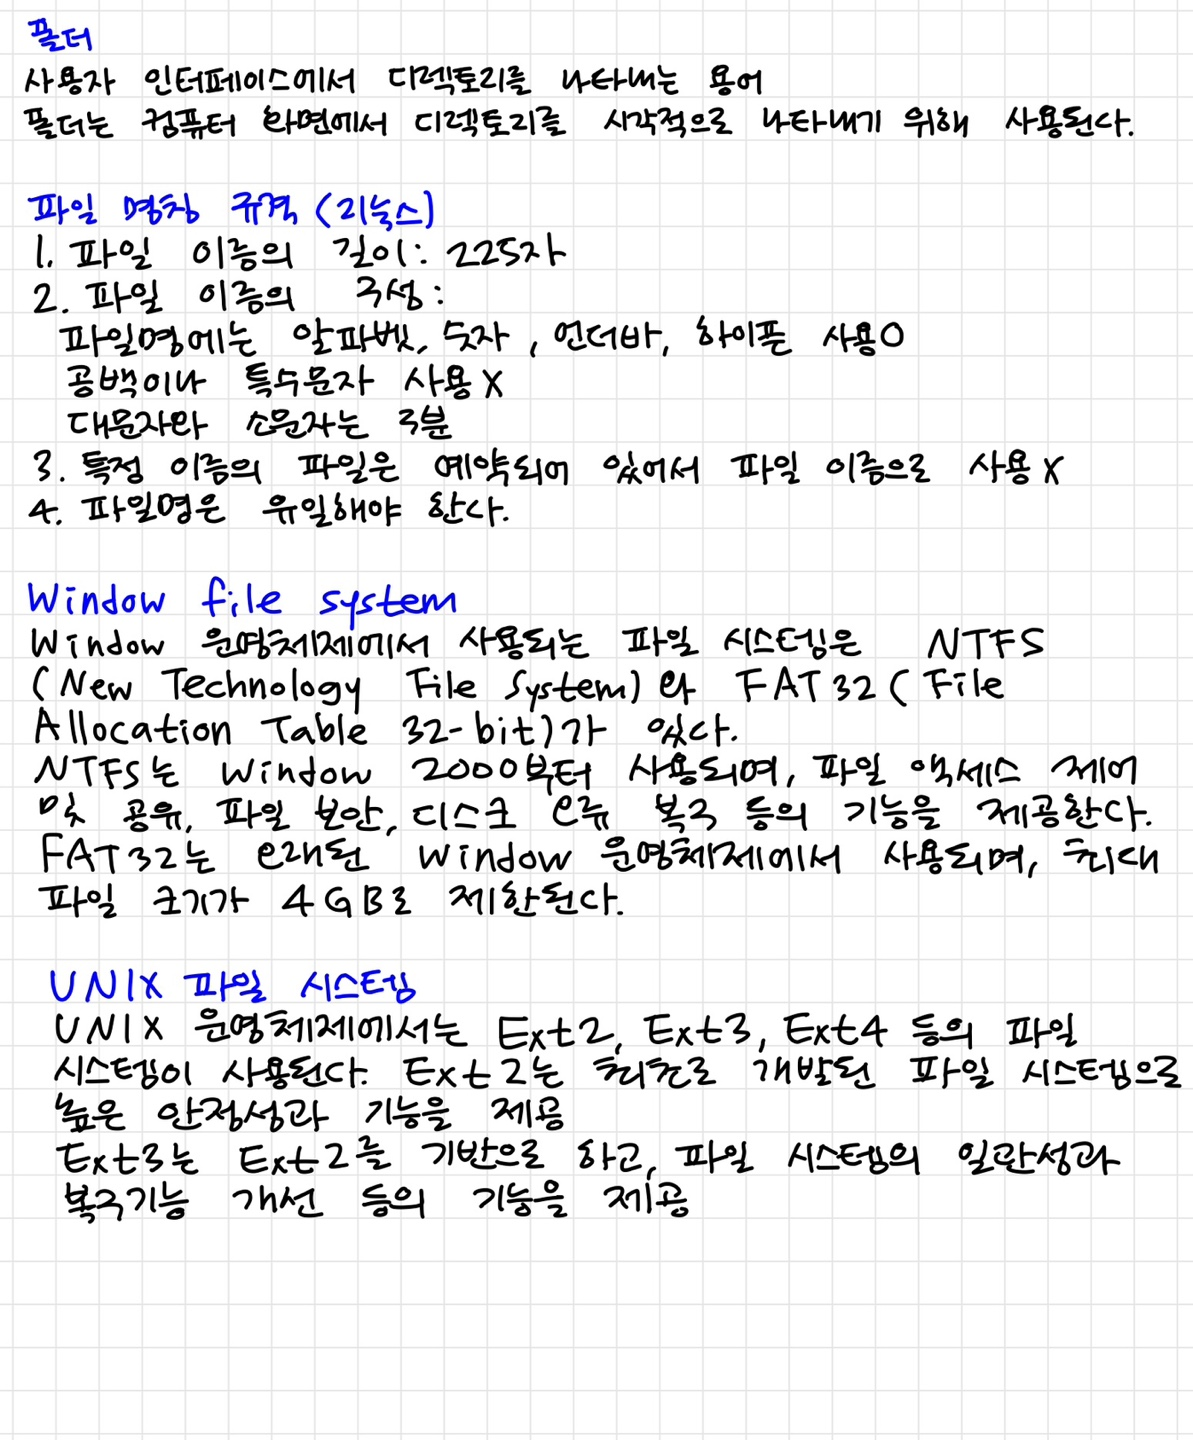 폴더
사용자 인터페이스에서 디렉토리를 나타내는 용어
폴더는 컴퓨터 화면에서 디렉토리를 시각적으로 나타내기 위해 사용된다.
파일 명칭 규격 (리눅스)
1. 파일 이름의 길이: 225자
2. 파일 이름의 구성:
파일명에는 알파벳, 숫자, 언더바, 하이픈 사용O
공백이나 특수문자 사용X
대문자와 소문자는 구분
3. 특정 이름의 파일은 예약되어 있어서 파일 이름으로 사용X
4. 파일명은 유일해야 한다.
Window file system
Window 운영체제에서 사용되는 파일 시스템은 NTFS
(New Technology File System)와 FAT32(File
Allocation Table 32-bit)가 있다.
NTFS는 Window 2000부터 사용되며, 파일 액세스 제어
및 공유, 파일 보안, 디스크 오류 복구 등의 기능을 제공한다.
FAT32는 오래된 Window 운영체제에서 사용되며, 최대
파일 크기가 4GB로 제한된다.
UNIX 파일 시스템
UNIX 운영체제에서는 Ext2, Ext3, Ext4 등의 파일
시스템이 사용된다. Ext2는 최초로 개발된 파일 시스템으로
높은 안정성과 기능을 제공
Ext3는 Ext2를 기반으로 하고, 파일 시스템의 일관성과
복구기능 개선 등의 기능을 제공